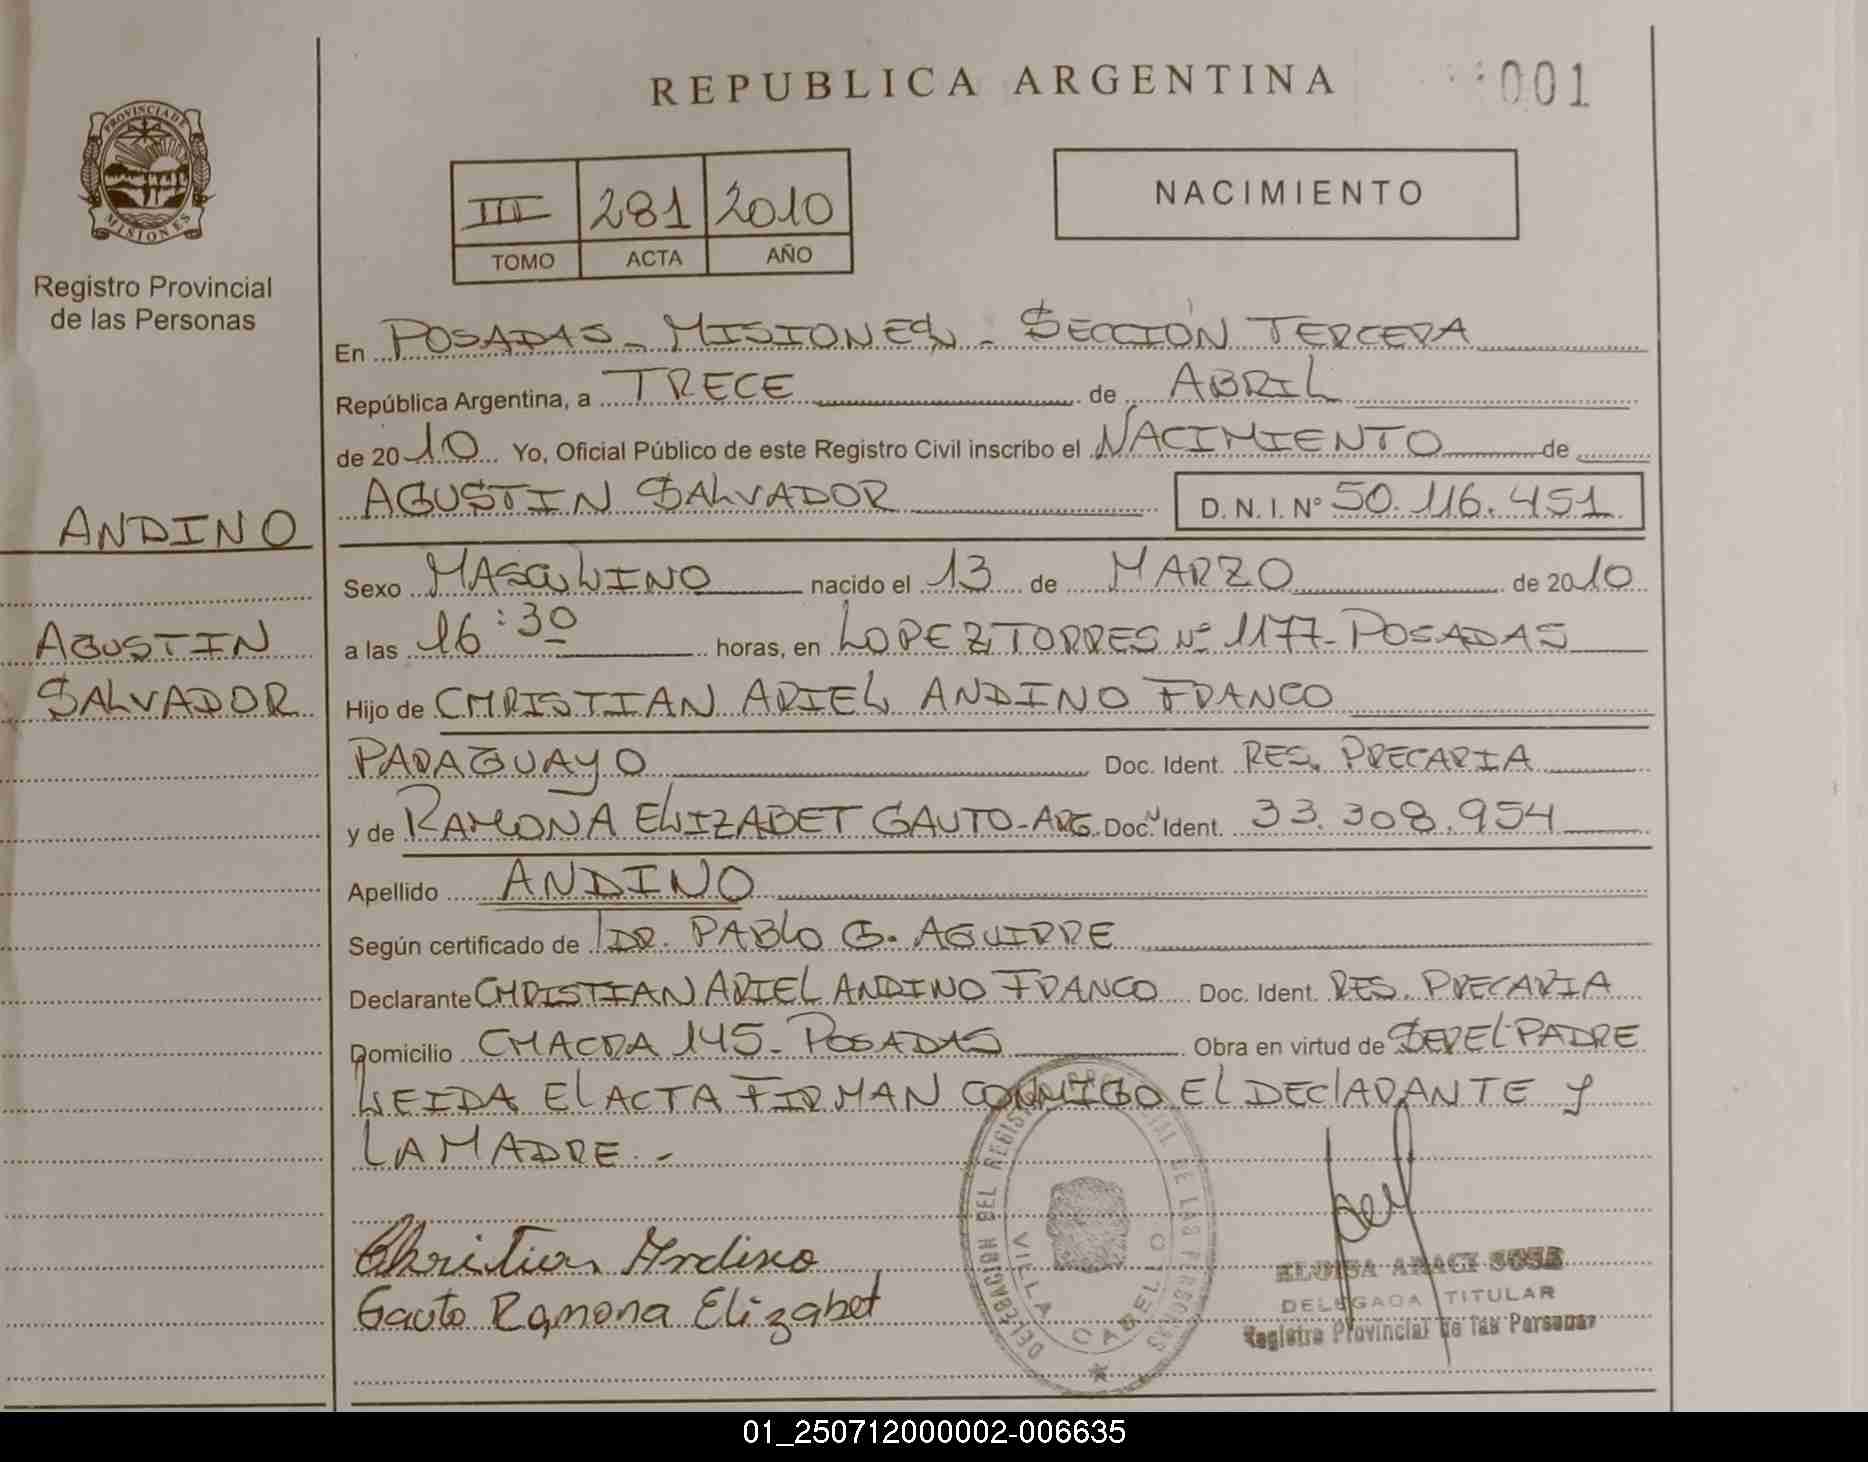 REPUBLICA ARGENTINA
001
PROVINCIA DE
MISIONES
Registro Provincial
de las Personas
III 281 2010
TOMO ACTA AÑO
NACIMIENTO
En POSADAS - MISIONES - SECCIÓN TERCERA
República Argentina, a TRECE de ABRIL
de 2010 Yo, Oficial Público de este Registro Civil inscribo el NACIMIENTO de
AGUSTIN SALVADOR D. N. I. Nº 50.116.451
ANDINO
Sexo MASCULINO nacido el 13 de MARZO de 2010
AGUSTIN
a las 16:30 horas, en LOPEZ TORRES Nº 1177 - POSADAS
SALVADOR
Hijo de CHRISTIAN ARIEL ANDINO FRANCO
PARAGUAYO Doc. Ident. RES. PRECARIA
y de RAMONA ELIZABET GAUTO - ARG. Doc. Ident. 33.308.954
Apellido ANDINO
Según certificado de DR. PABLO G. AGUIRRE
Declarante CHRISTIAN ARIEL ANDINO FRANCO Doc. Ident. RES. PRECARIA
Domicilio CHACRA 145 - POSADAS Obra en virtud de SER EL PADRE
LEIDA EL ACTA FIRMAN CONMIGO EL DECLARANTE Y
LA MADRE. -
Christian Andino
Gauto Ramona Elizabet
DELEGACION DEL REGISTRO PROVINCIAL DE LAS PERSONAS
VILLA CABELLO
ELOISA ARACI SOSA
DELEGADA TITULAR
Registro Provincial de las Personas
01_250712000002-006635